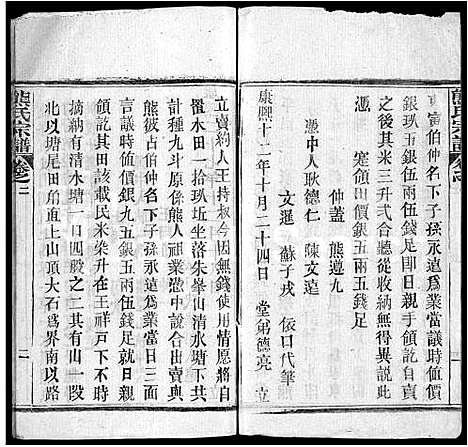 熊氏宗譜
富伯仲名下子孫永遠爲業當議時值價
銀玖五銀五兩伍錢足即日親手領訖自交
之後其米三升弍合聽從收納無得異說此
憑
寔領田價銀五兩五錢足
仲蓋 熊遵九
憑中人耿德仁 陳文遠
文運 蘇子戎 依口代筆
康熙十二年十月二十四日 堂弟德亮 立
立賣約人王持叔今因無錢使用情愿將自
置水田一拾玖坵坐落朱峯山清水塘下共
計種九斗原係熊人祖業憑中說合出賣與
熊彼分富伯仲名下子孫永遠爲業當日三面
言議時值價銀九五銀五兩伍錢足就日親手
領訖其田該載民米柒升在王祥戶下不明
摘納有清水塘一口四股之二其有山一段
北以塘尾田角直上山頂大石爲界南以路
熊氏宗譜 卷之二